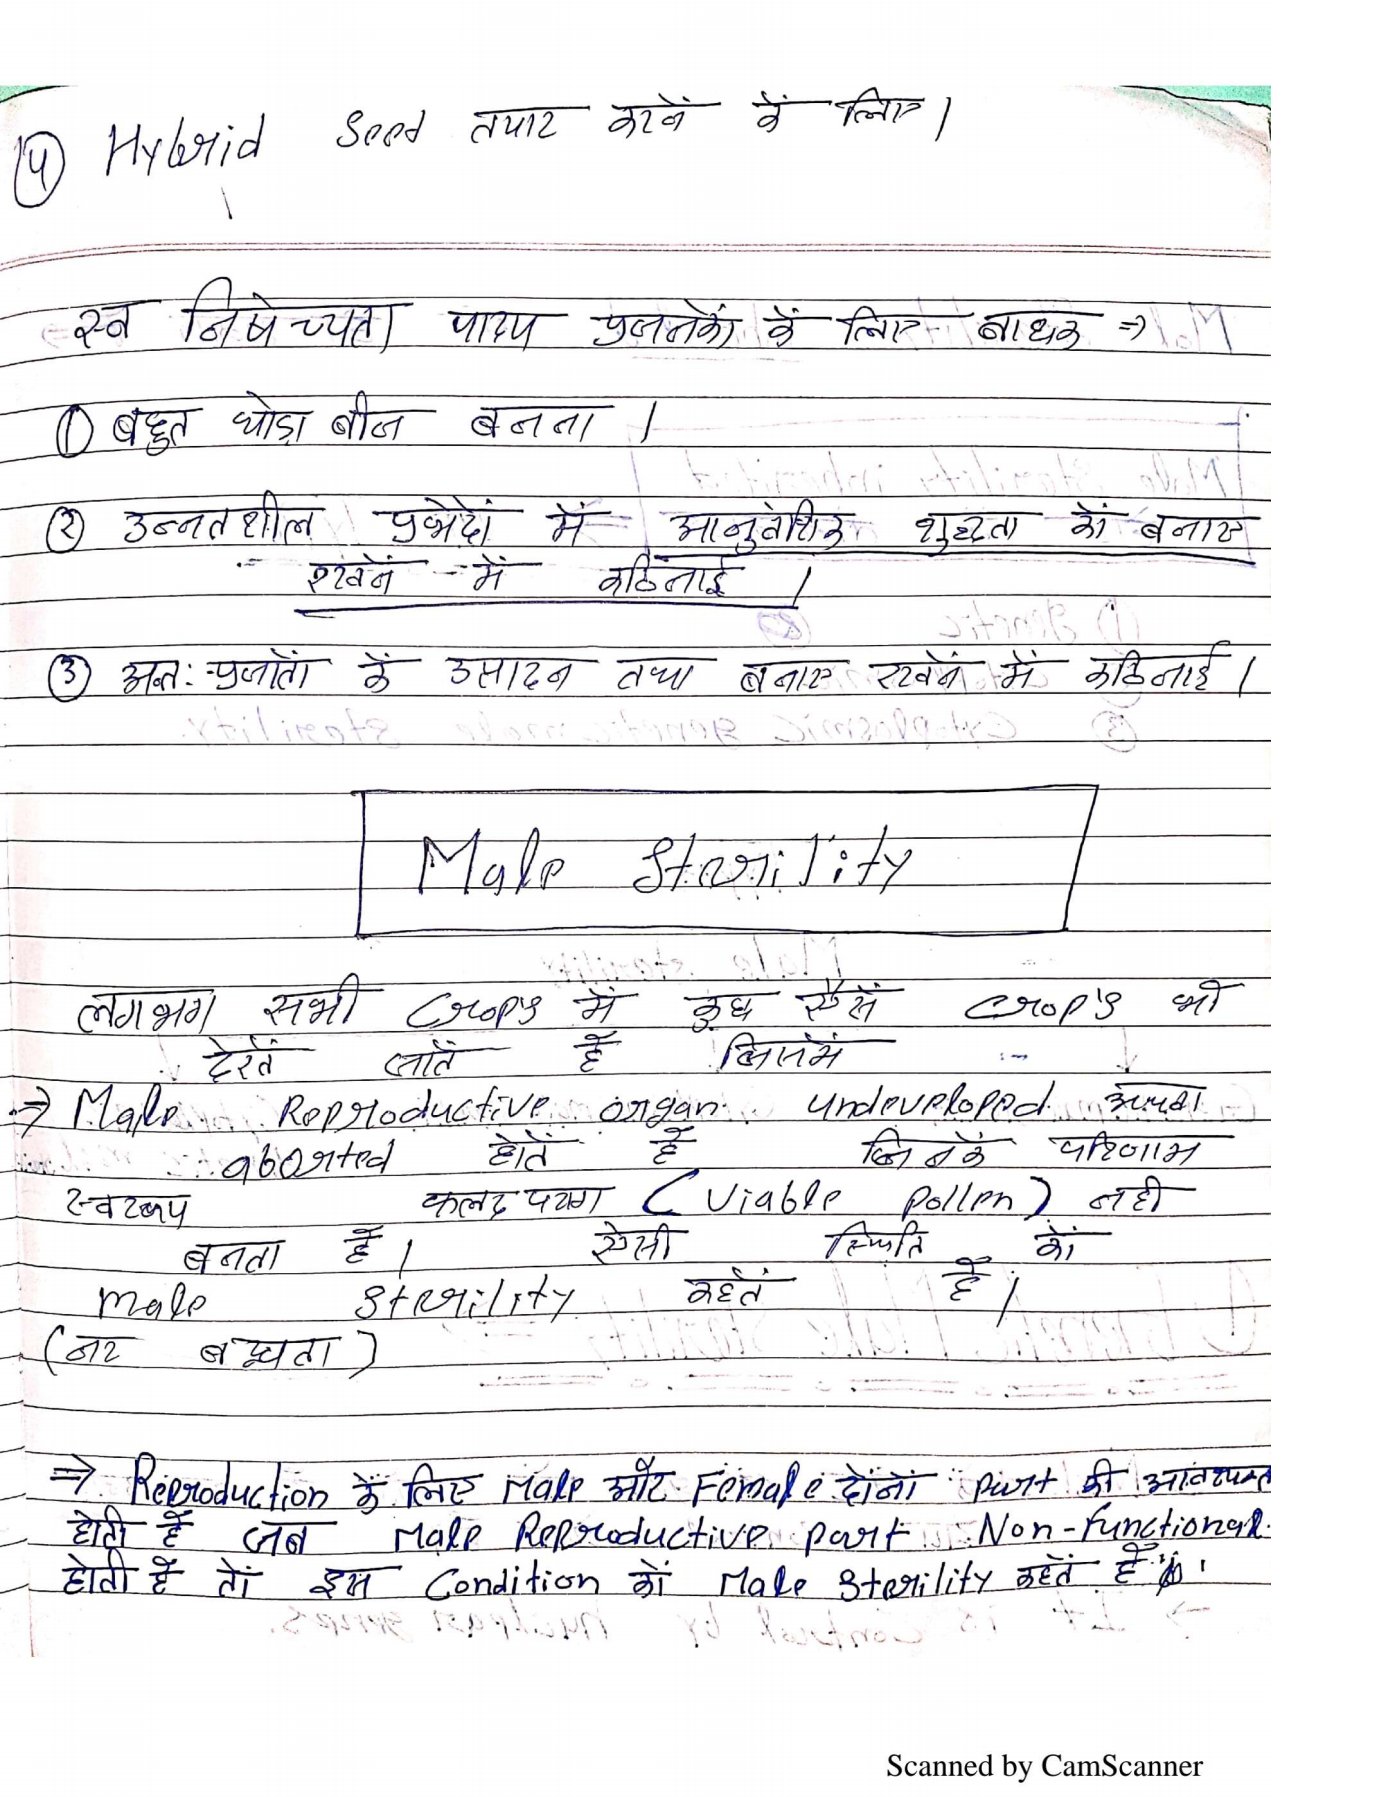 ④ Hybrid Seed तयार करने के लिए।
स्व निषेच्यता पादप प्रजनकों के लिए बाधक ⇒
① बहुत थोड़ा बीज बनना।
② उन्नतशील प्रभेदों में आनुवंशिक शुद्धता कों बनाए
रखनें में कठिनाई।
③ अन्तः प्रजातों के उत्पादन तथा बनाए रखनें में कठिनाई।
Male Sterility
लगभग सभी Crop's में कुछ ऐसें Crop's भी
देखें जातें हैं जिसमें
→ Male Reproductive organ undeveloped अथवा
aborted होतें हैं जिनकें परिणाम
स्वरूप (Viable Pollen) नही
बनता हैं। ऐसी स्थिति कों
Male Sterility कहतें हैं।
(नर बन्ध्यता)
⇒ Reproduction कें लिए Male और Female दोंनों Part की आवश्यकता
होती हैं जब Male Reproductive part Non-Functional
होती हैं तों इस Condition कों Male Sterility कहतें हैं।
Scanned by CamScanner